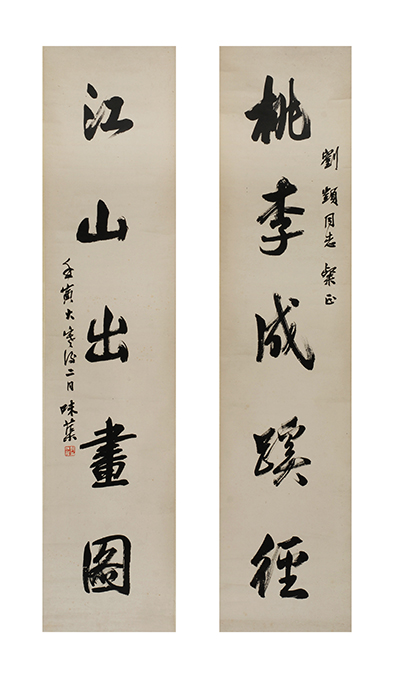 劉 同志 粲正
桃李成蹊徑
江山出畫圖
壬寅大寒後二日 味蕖